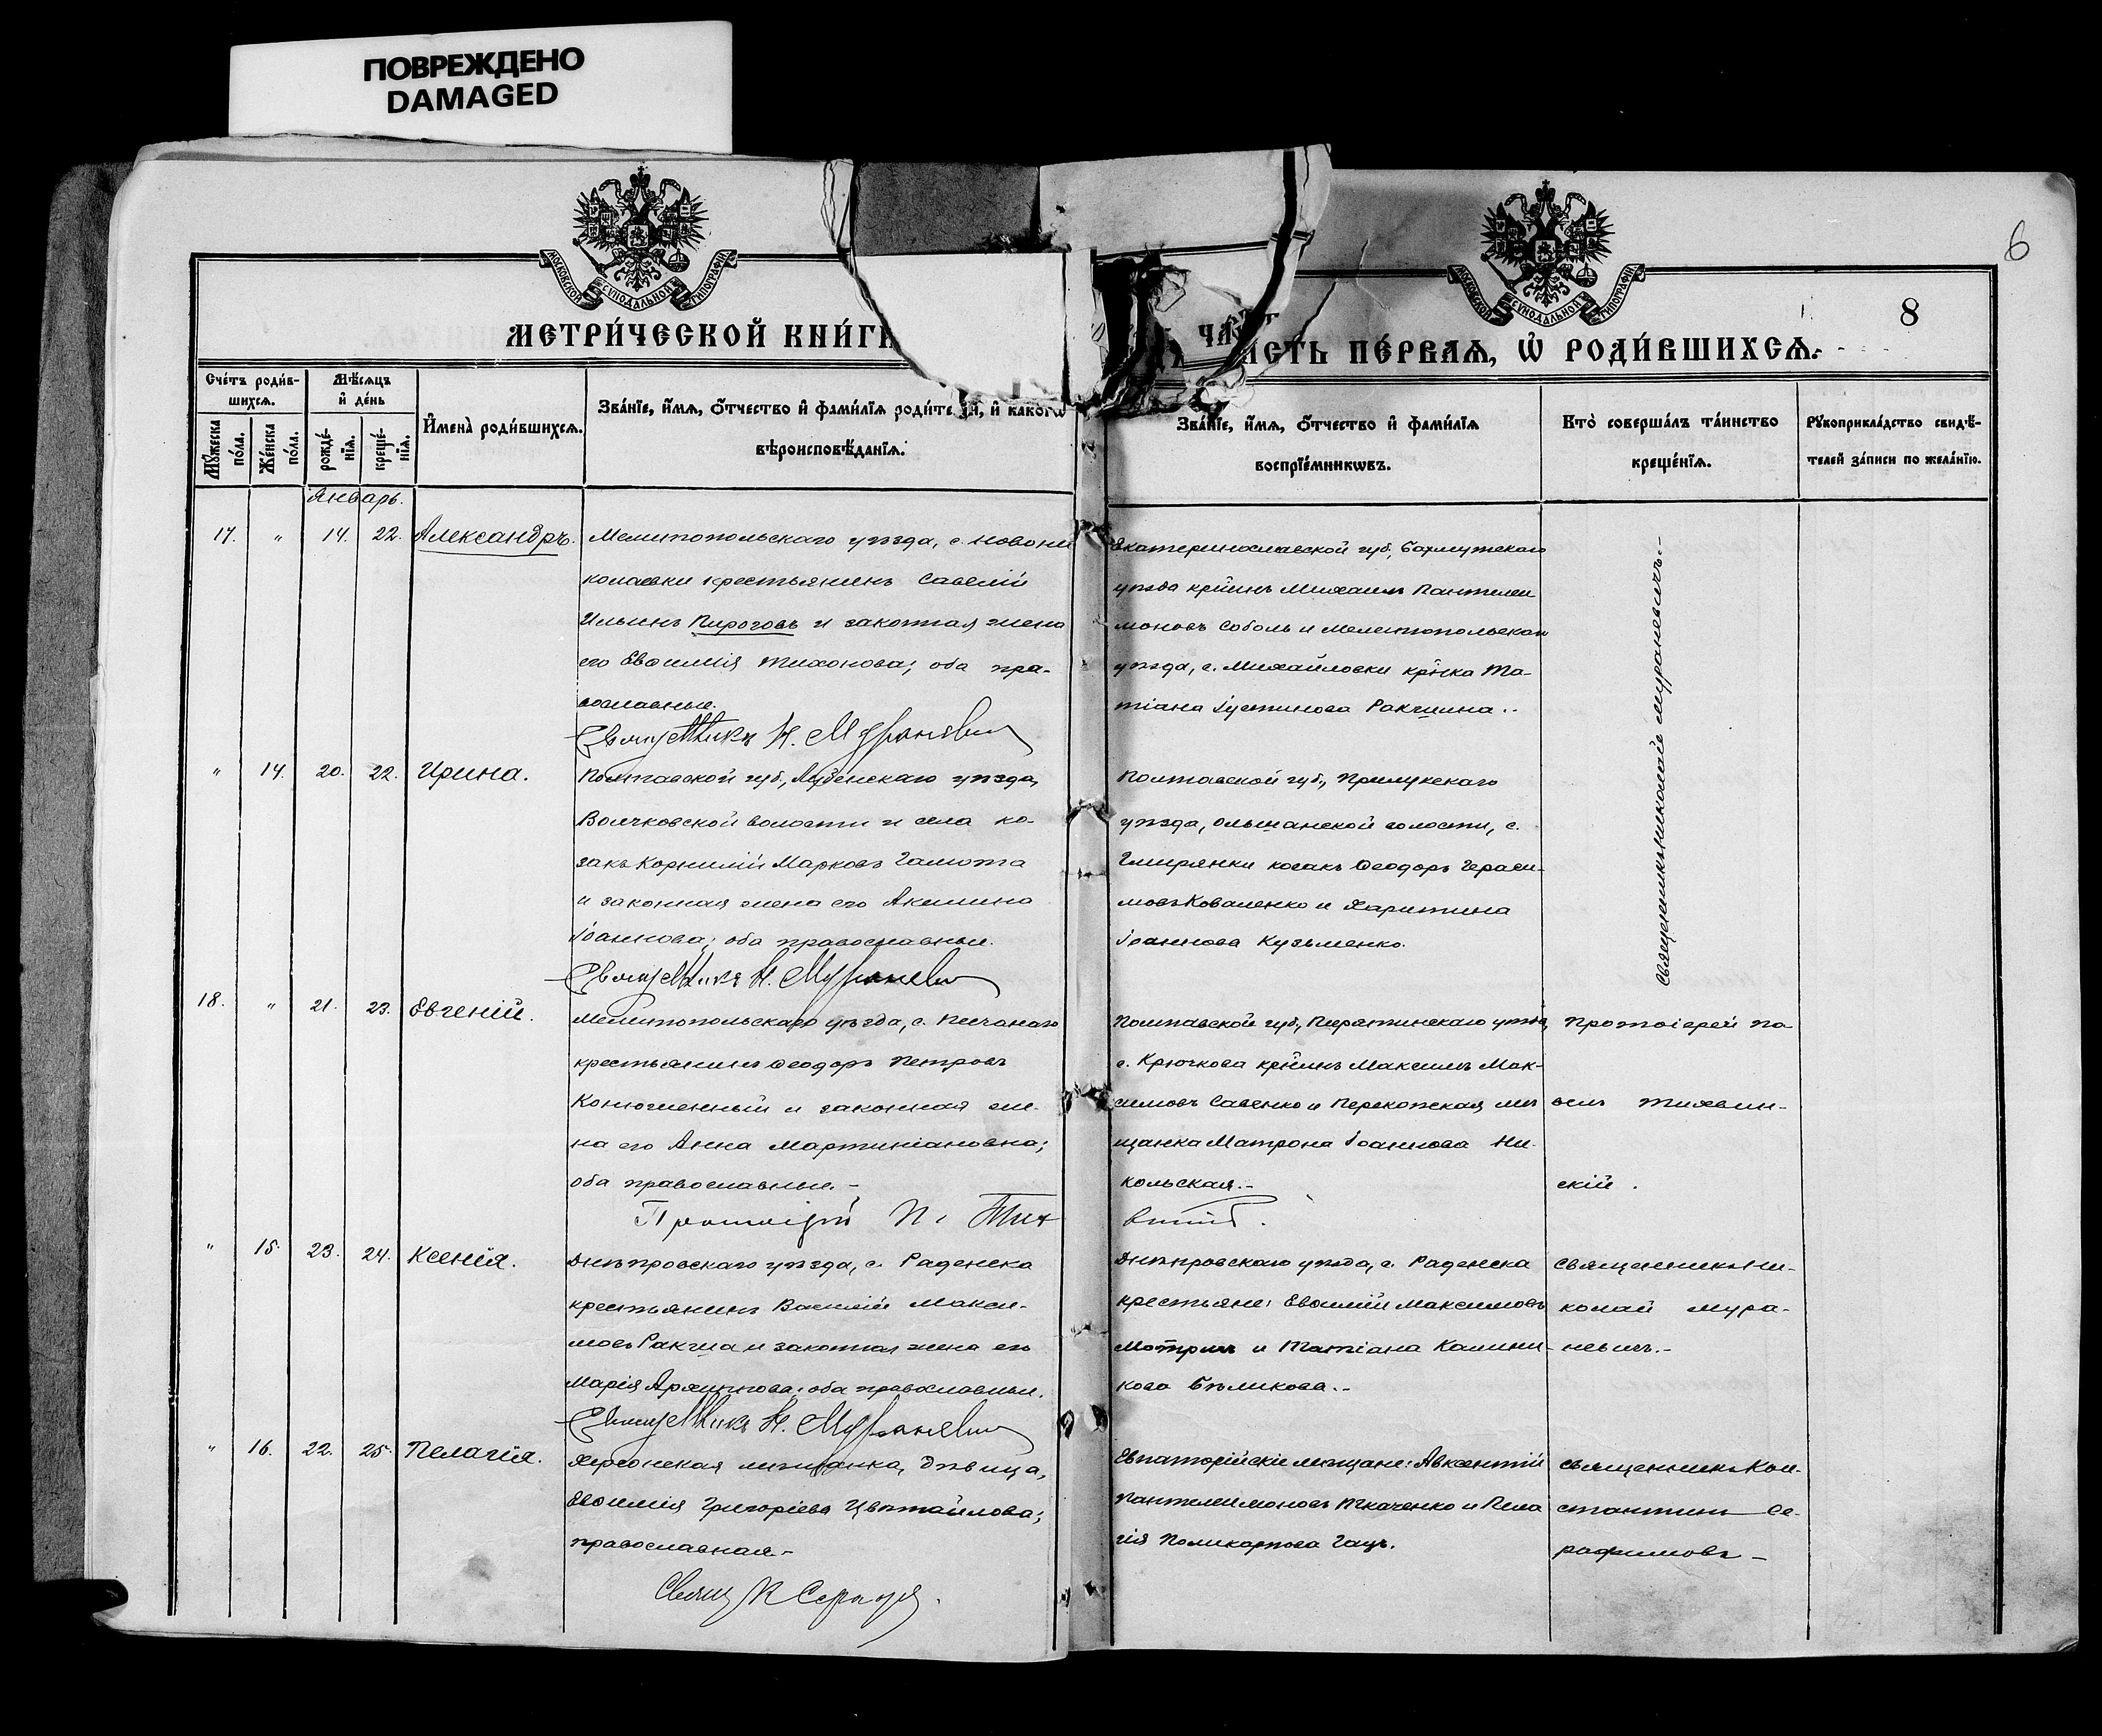 ПОВРЕЖДЕНО
DAMAGED
6
8
МОСКОВСКОЙ СѴНОДАЛЬНОЙ ТИПОГРАФІИ
МОСКОВСКОЙ СѴНОДАЛЬНОЙ ТИПОГРАФІИ
МЕТРИ́ЧЕСКОЙ КНИ́ГИ
ЧА́СТЬ ПЕ́РВАѦ, Ѡ҆ РОДИ́ВШИХСѦ.
Сче́тъ роди́в-
шихсѧ.
Мѣ́сѧцъ
и҆ де́нь
Мꙋ́жеска
по́ла.
Же́нска
по́ла.
рожде́-
нїѧ.
креще́-
нїѧ.
И҆мена̀ роди́вшихсѧ.
Зва́нїе, и҆́мѧ, ѻ҆́тчество и҆ фами́лїѧ роди́телей, и҆ како́гѡ
вѣроисповѣ́данїѧ.
Зва́нїе, и҆́мѧ, ѻ҆́тчество и҆ фами́лїѧ
воспрїе́мникѡвъ.
Кто̀ соверша́лъ та́инство
креще́нїѧ.
Рꙋкоприкла́дство свидѣ́-
телей за́писи по жела́нїю.
Январь.
17. " 14. 22. Александръ.
Мелитопольскаго уѣзда, с. Новони
колаевки крестьянинъ Савелій
Ильинъ Пироговъ и законная жена
его Евфимія Тихонова; оба пра-
вославные.
Священникъ Н. Мураневич
Екатеринославской губ., Бахмутскаго
уѣзда кр̃йинъ Михаилъ Пантелеи
моновъ Соболь и Мелитопольскаго
уѣзда, с. Михайловки кр̃нка Та-
тіана Іустинова Ракшина..
Священникъ Николай Мураневичъ.-
" 14. 20. 22. Ирина.
Полтавской губ., Лубенскаго уѣзда,
Волчковской волости и села ко-
закъ Корнилій Марковъ Гамота
и законная жена его Акилина
Іоаннова; оба православные.
Священникъ Н. Мураневич
Полтавской губ., Прилукскаго
уѣзда, Ольшанской волости, с.
Гмирянки козакъ Ѳеодоръ Гераси-
мовъ Коваленко и Харитина
Іоаннова Кузьменко.
18. " 21. 23. Евгеній.
Мелитопольскаго уѣзда, с. Песчанаго
крестьянинъ Ѳеодоръ Петровъ
Конюшенный и законная же-
на его Анна Мартиніановна;
оба православные.-
Протоіерей П. Тих
витс.
Полтавской губ., Пирятинскаго уѣзда,
с. Крючкова кр̃йинъ Максимъ Мак-
симовъ Савенко и Перекопская мѣ
щанка Матрона Іоаннова Ни-
кольская.-
Протоіерей Па-
велъ Тихвин-
скій.
" 15. 23. 24. Ксенія.
Днѣпровскаго уѣзда, с. Раденска
крестьянинъ Василій Макси-
мовъ Ракша и законная жена его
Марія Архиппова; оба православные.
Священникъ Н. Мураневич
Днѣпровскаго уѣзда, с. Раденска
крестьяне: Евфимій Максимовъ
и Татіана Калини-
кова Бѣликова.-
Священникъ Ни-
колай Мура-
невичъ.-
" 16. 22. 25. Пелагія.
Херсонская мѣщанка, дѣвица,
Евфимія Григоріева Цвѣтайлова;
православная.-
Свящ К Серафи
Евпаторійскіе мѣщане: Авксентій
Пантелеимоновъ Ткаченко и Пела
гія Поликарпова Гацъ.
Священникъ Кон-
стантинъ Се-
рафимовъ-